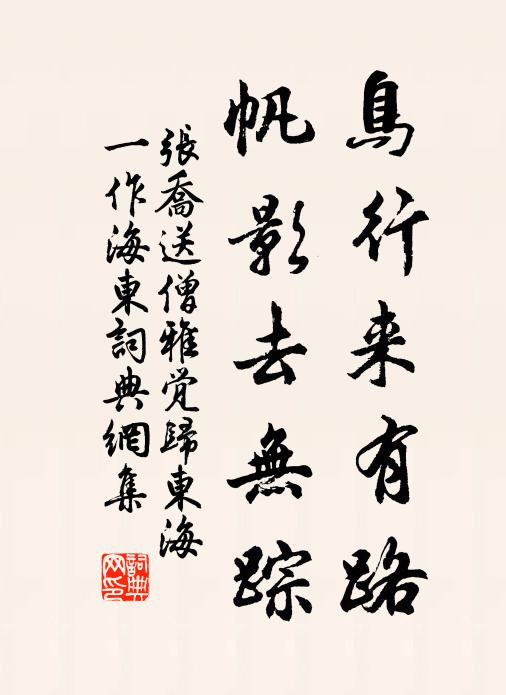 鳥行来有路
帆影去無踪
張喬送僧雅覚歸東海
一作海東詞典網集
詞典
网印